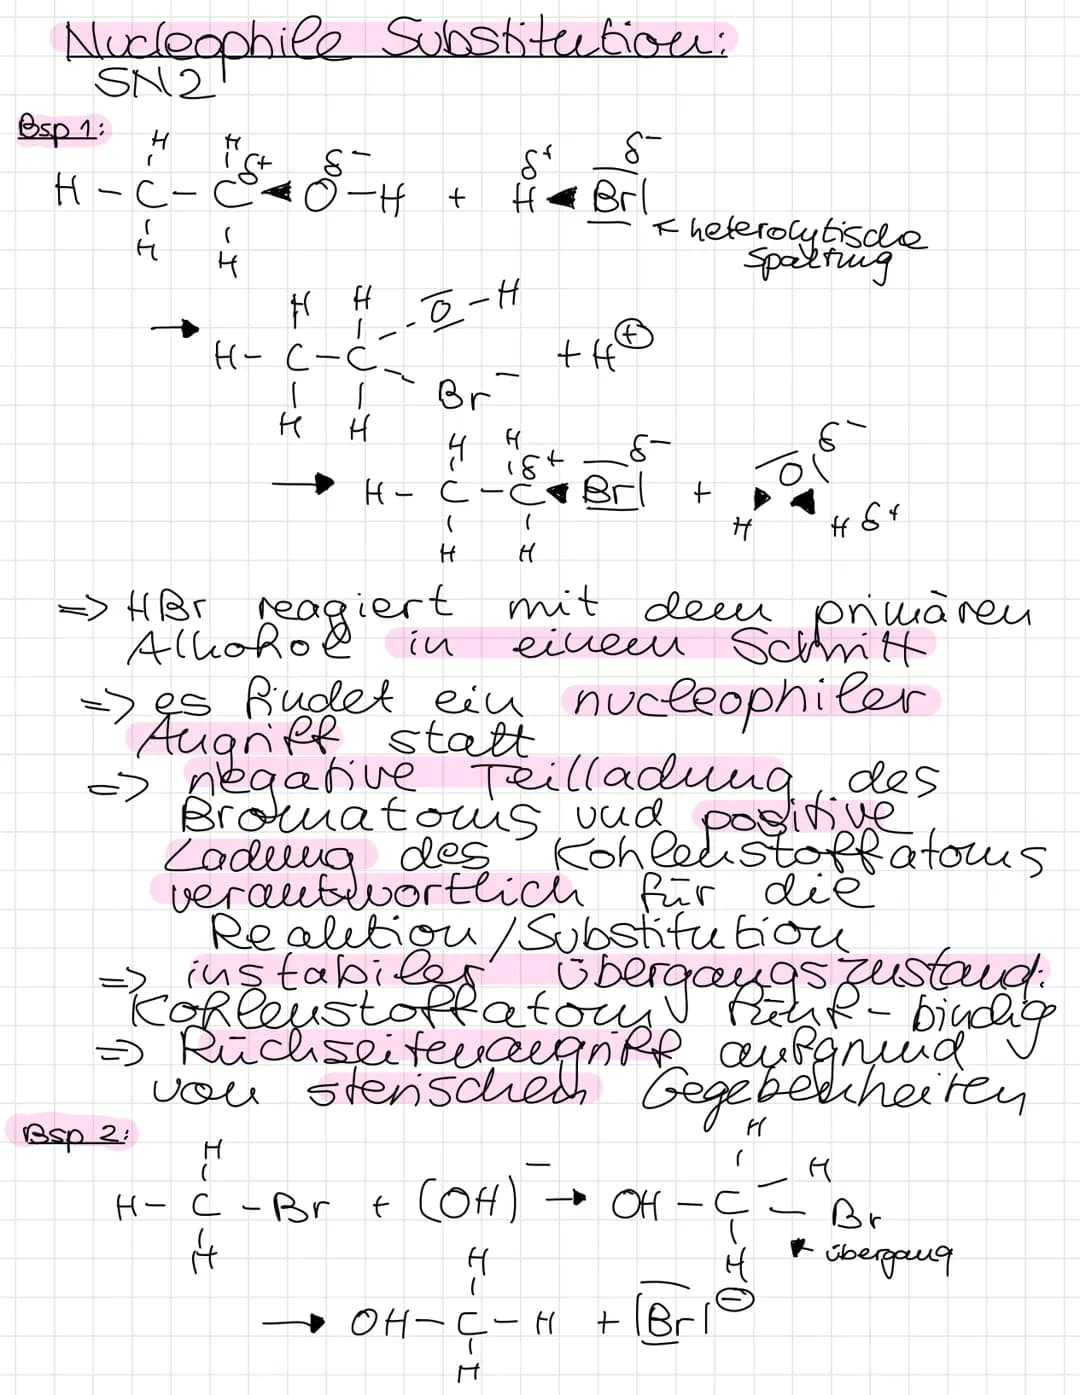 Nucleophile Substitution:
SN2
Bsp 1:
H H
H - C - C δ+ ◄ O δ- - H + H δ+ ◄ Br| δ-
H H
↖ heterolytische
Spaltung
→ H H O - H
H - C - C + H ⊕
Br -
H H
H H
→ H - C - C δ+ ◄ Br| δ- + |O| δ-
H H H H δ+
=> HBr reagiert mit dem primären
Alkohol in einem Schritt
=> es findet ein nucleophiler
Angriff statt
=> negative Teilladung des
Bromatoms und positive
Ladung des Kohlenstoffatoms
verantwortlich für die
Reaktion/Substitution
=> instabiler Übergangszustand:
Kohlenstoffatom fünf-bindig
=> Rückseitenangriff aufgrund
von sterischen Gegebenheiten
Bsp 2:
H H
H - C - Br + (OH)⁻ → OH - C - H Br
H H
↖ übergang
H
→ OH - C - H + |Br| ⊖
H